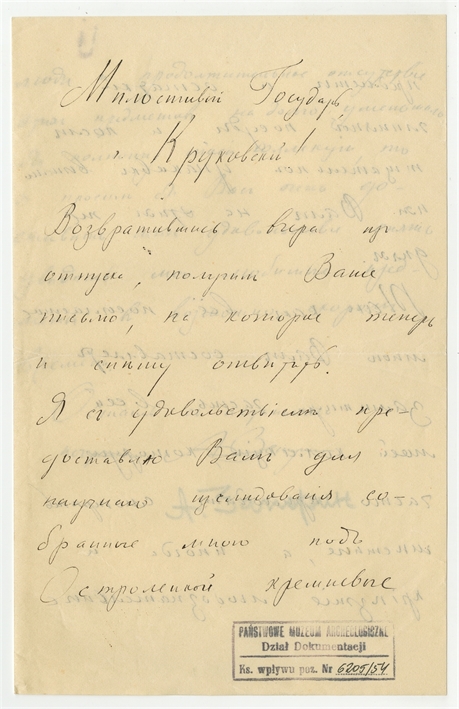 Милостивый Государь,
г. Круковскій!
Возвратившись вчера из
отпуска, получилъ Ваше
письмо, на которое теперь
и спѣшу отвѣтить.
Я съ удовольствіемъ пре-
доставлю Вамъ для
научнаго изслѣдованія со-
бранные мною подъ
Остроленкой кремневые
PAŃSTWOWE MUZEUM ARCHEOLOGICZNE
Dział Dokumentacji
Ks. wpływu poz. Nr 6205/54